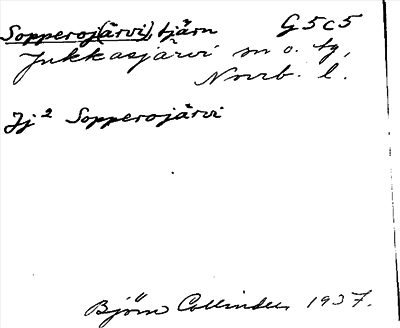 Sopperoj(ärvi), tjärn G5c5
Jukkasjärvi sn o. tg,
Norrb. l.
Jj² Sopperojärvi
Björn Collinder 1937.